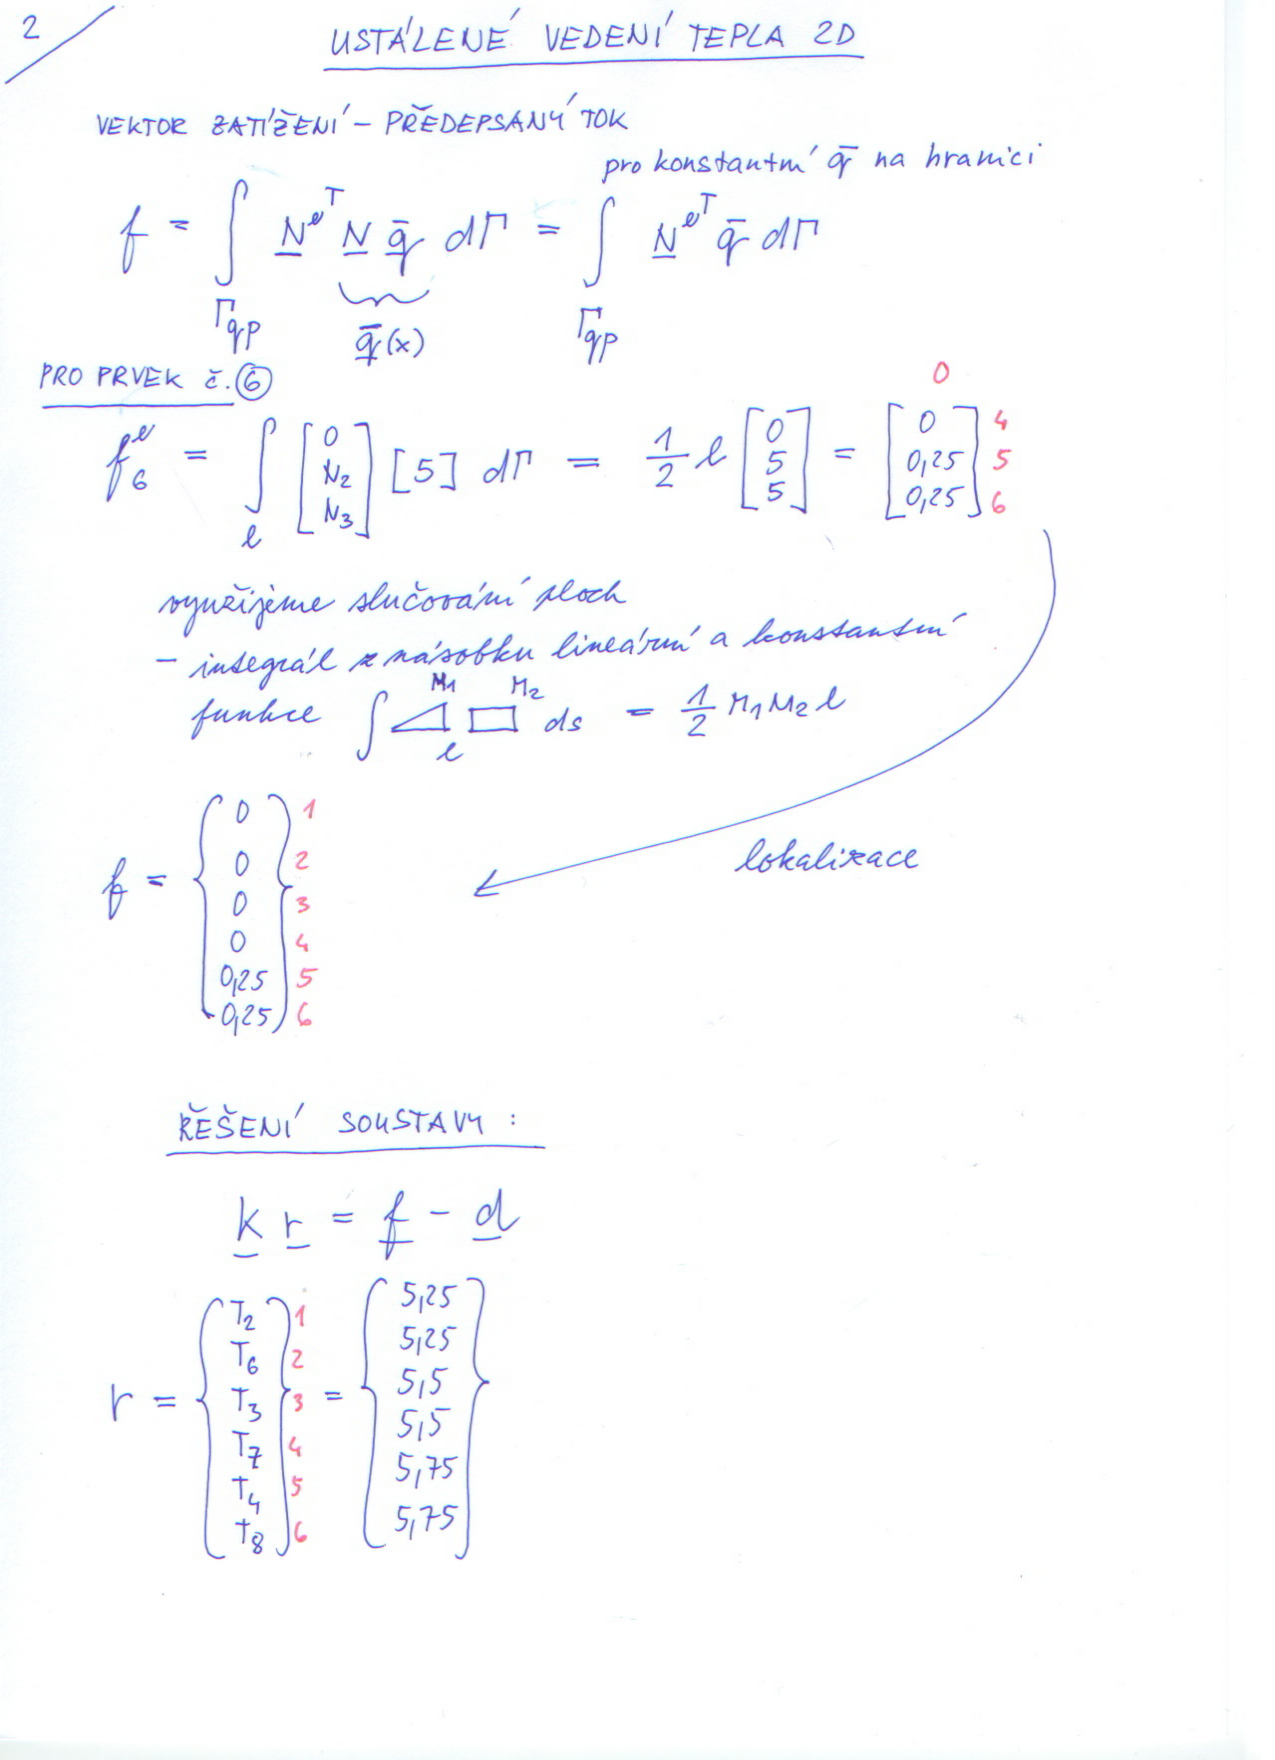 2
USTÁLENÉ VEDENÍ TEPLA 2D
VEKTOR ZATÍŽENÍ – PŘEDEPSANÝ TOK
pro konstantní q̄ na hranici
f = ∫ N^eT N q̄ dΓ = ∫ N^eT q̄ dΓ
Γqp q̄(x) Γqp
PRO PRVEK č. ⑥
0
f₆^e = ∫ [0 N₂ N₃] [5] dΓ = 1/2 l [0 5 5] = [0 0,25 0,25] 4 5 6
l
využijeme slučování ploch
– integrál z násobku lineární a konstantní
funkce ∫ M₁ M₂ ds = 1/2 M₁ M₂ l
l
f = {0 0 0 0 0,25 0,25} 1 2 3 4 5 6
lokalizace
ŘEŠENÍ SOUSTAVY :
k r = f – d
r = {T₂ T₆ T₃ T₇ T₄ T₈} 1 2 3 4 5 6 = {5,25 5,25 5,5 5,5 5,75 5,75}